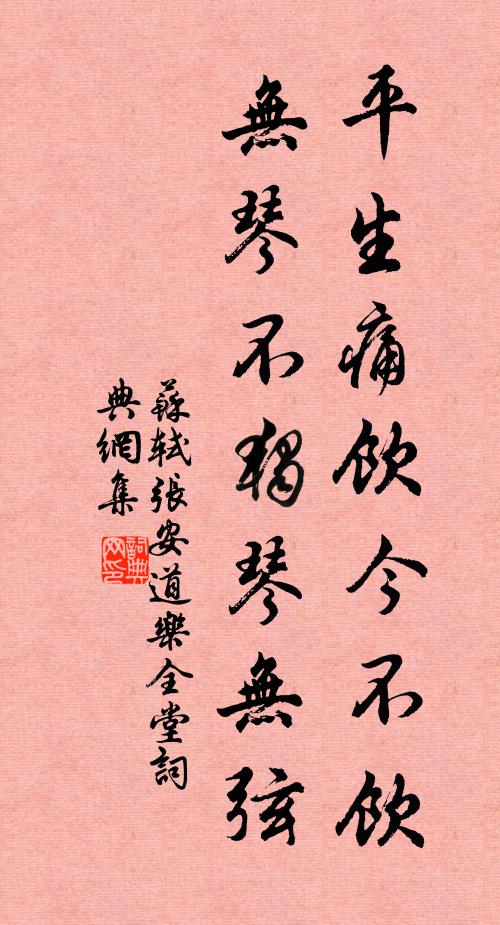 平生痛飲今不飲
無琴不獨琴無弦
蘇軾張安道樂全堂詞
典網集
詞典
网印